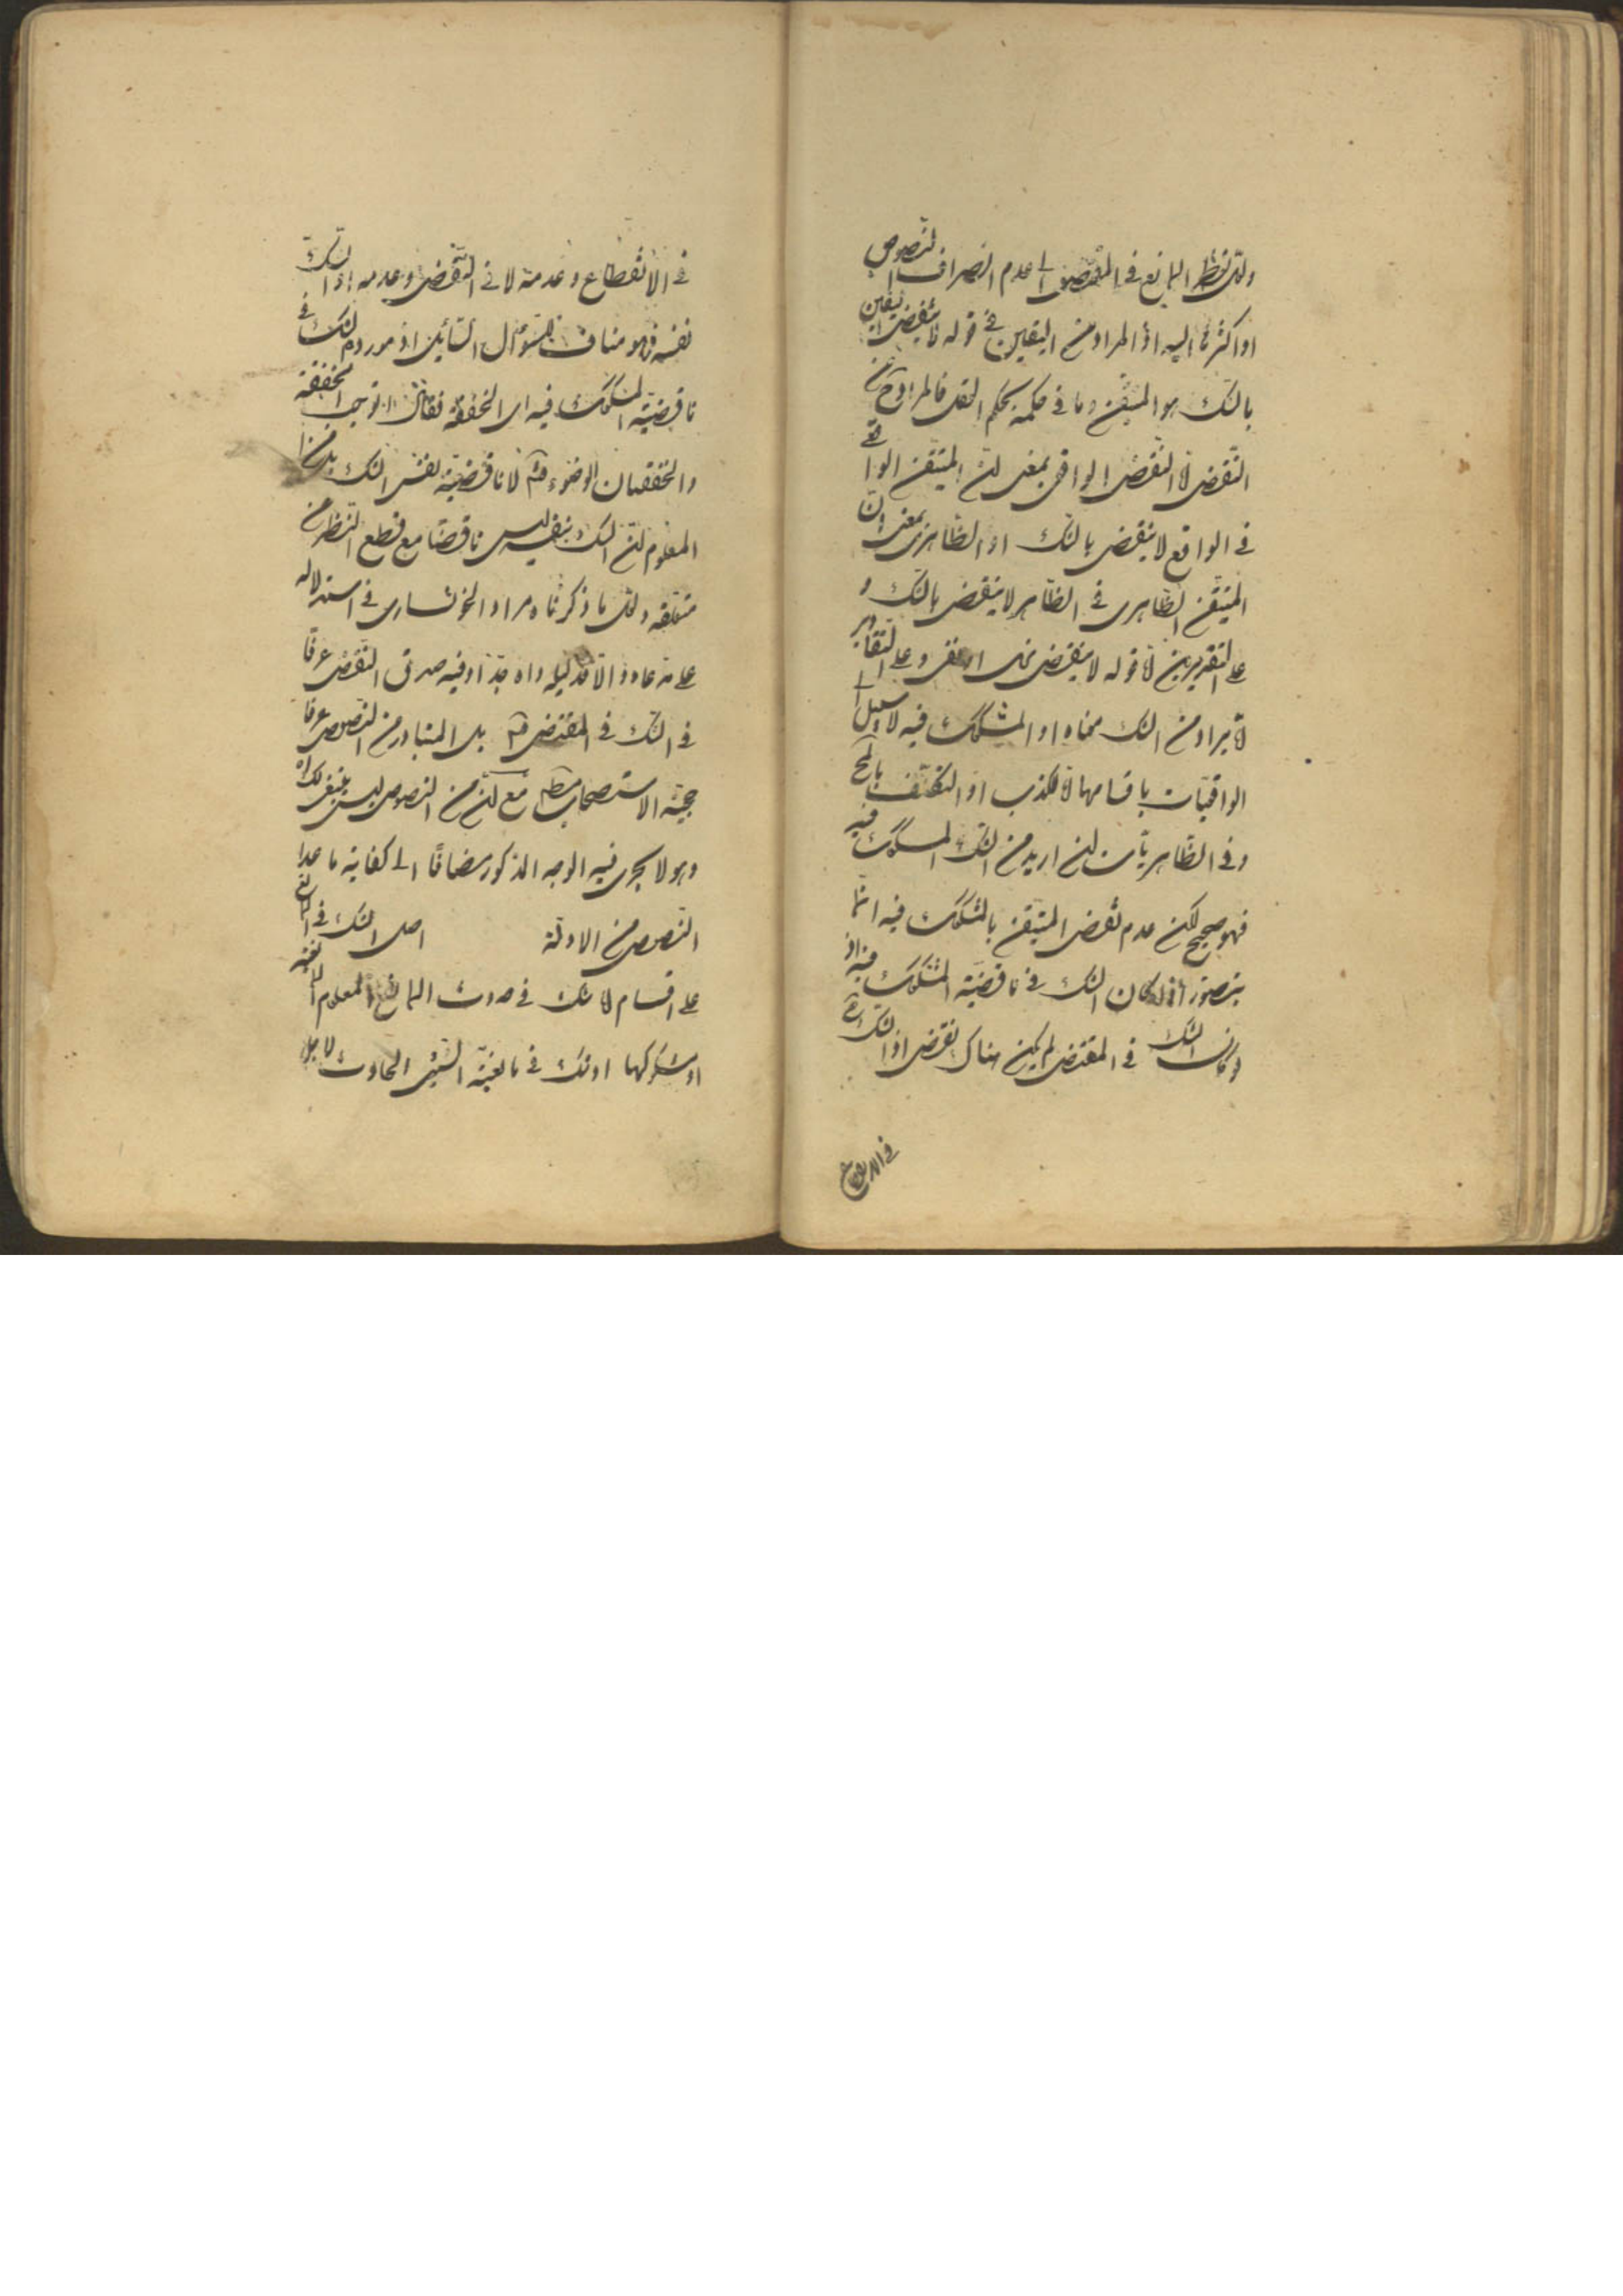 ولعل نظر المانع في المقتضى الى عدم انصراف النصوص
او اكثرها اليه اذ المراد من اليقين في قوله لا ينقض اليقين
بالشك هو المتيقن وما في حكمه بحكم العقل فالمراد ح من
النقض اما النقض الواقعي بمعنى ان المتيقن الواقعي
في الواقع لا ينقض بالشك او الظاهري بمعنى ان
المتيقن الظاهري في الظاهر لا ينقض بالشك و
على التقديرين اما قوله لا ينقض نهى او نفى وعلى التقادير
اما يراد من الشك معناه او المشكوك فيه لا سبيل الى
الواقعيات باقسامها للكذب او التكليف بالمح
وفي الظاهريات ان اريد من الشك المشكوك فيه
فهو صحيح لكن عدم نقض المتيقن بالمشكوك فيه انما
يتصور اذا كان الشك في ناقضية المشكوك فيه اذ
لو كان الشك في المقتضى لم يكن هناك نقض اذ الشك ح
في الانقطاع
في الانقطاع وعدمه لا في النقض وعدمه اذ الشك
نفسه فهو مناف لسؤال السائل اذ مورده الشك في
ناقضية المشكوك فيه اى الخفقة فقال اتوجب الخفقة
والخفقتان الوضوء لا ناقضية نفس الشك
المعلوم ان الشك بنفسه ليس ناقضا مع قطع النظر من
متعلقه ولعل ما ذكرنا مراد الخونساري في استدلاله
على مدعاه والا فدليله واه جدا وفيه صدق النقض عرفا
في الشك في المقتضى بل المتبادر من النصوص عرفا
حجية الاستصحاب مع ان من النصوص ليس بنقض
وهو لا يجرى فيه الوجه المذكور مضافا الى كفاية ما عدا
النصوص من الادلة اصل الشك في المانع
على اقسام لانه شك في حدوث المانع المعلوم المانعية
او مشكوكها او شك في مانعية الشيء الحادث لاجل